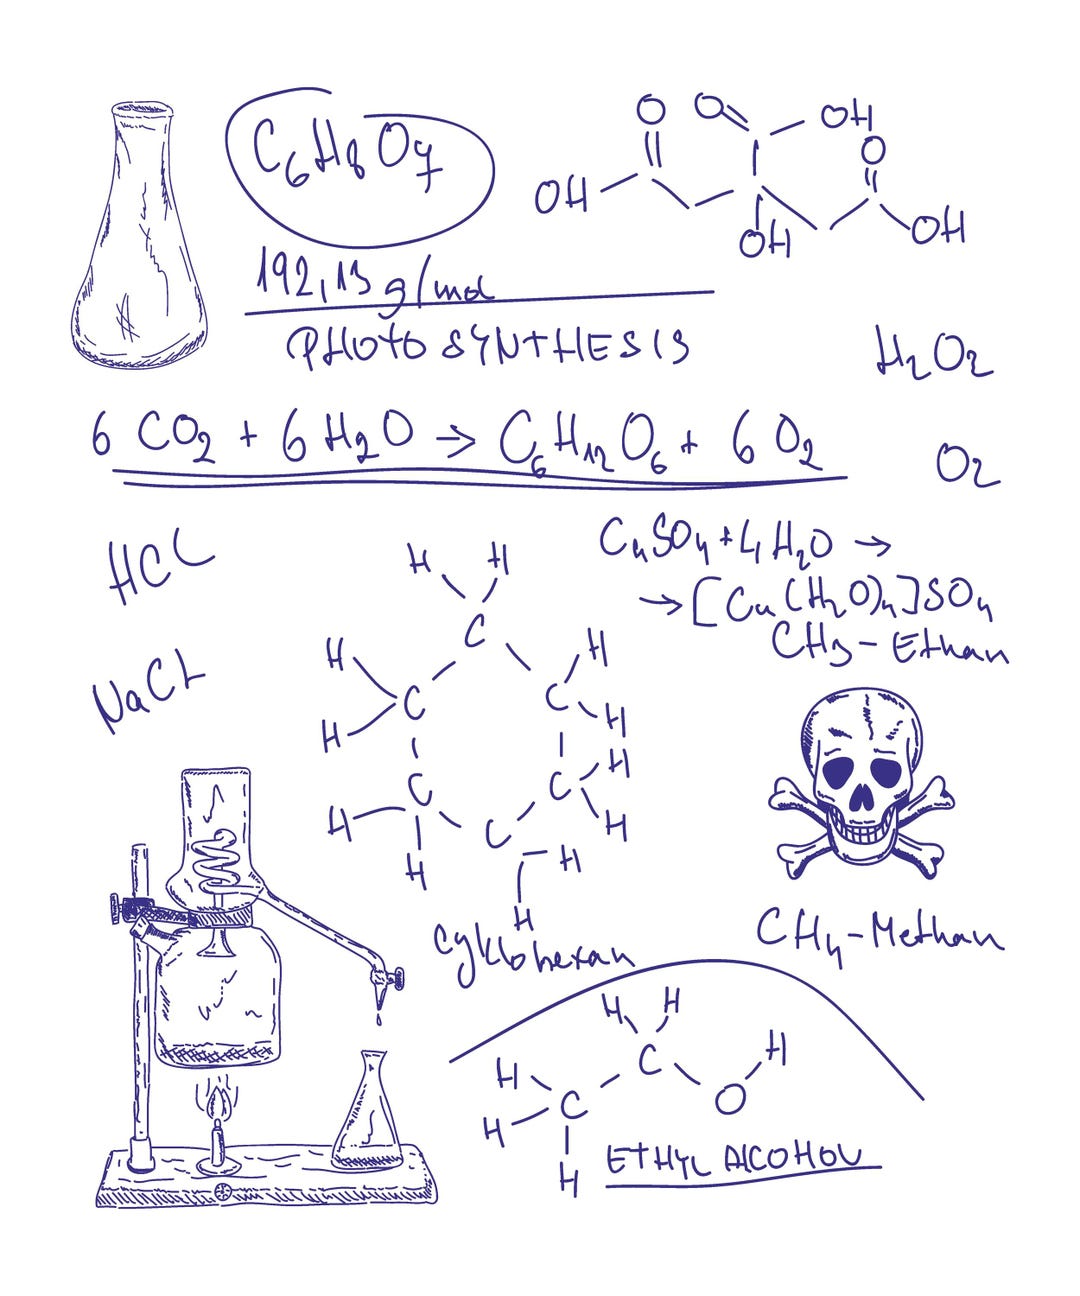 C₆H₈O₇
O O OH
O
OH OH OH
192,13 g/mol
PHOTOSYNTHESIS
H₂O₂
6 CO₂ + 6 H₂O → C₆H₁₂O₆ + 6 O₂
O₂
HCL
CuSO₄ + 4H₂O →
→ [Cu(H₂O)₄]SO₄
CH₃ - Ethan
NaCL
H H
C
H C C H
H H
C C H
H C H
H H
H
Cyklohexan
CH₄-Methan
H H
H C H
H C O
H
ETHYL ALCOHOL